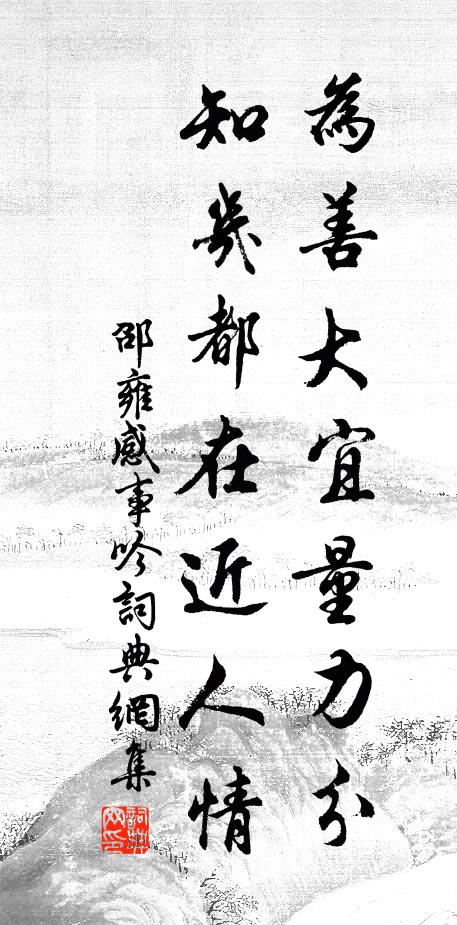 為善大宜量力分
知幾都在近人情
邵雍感事吟詞典網集